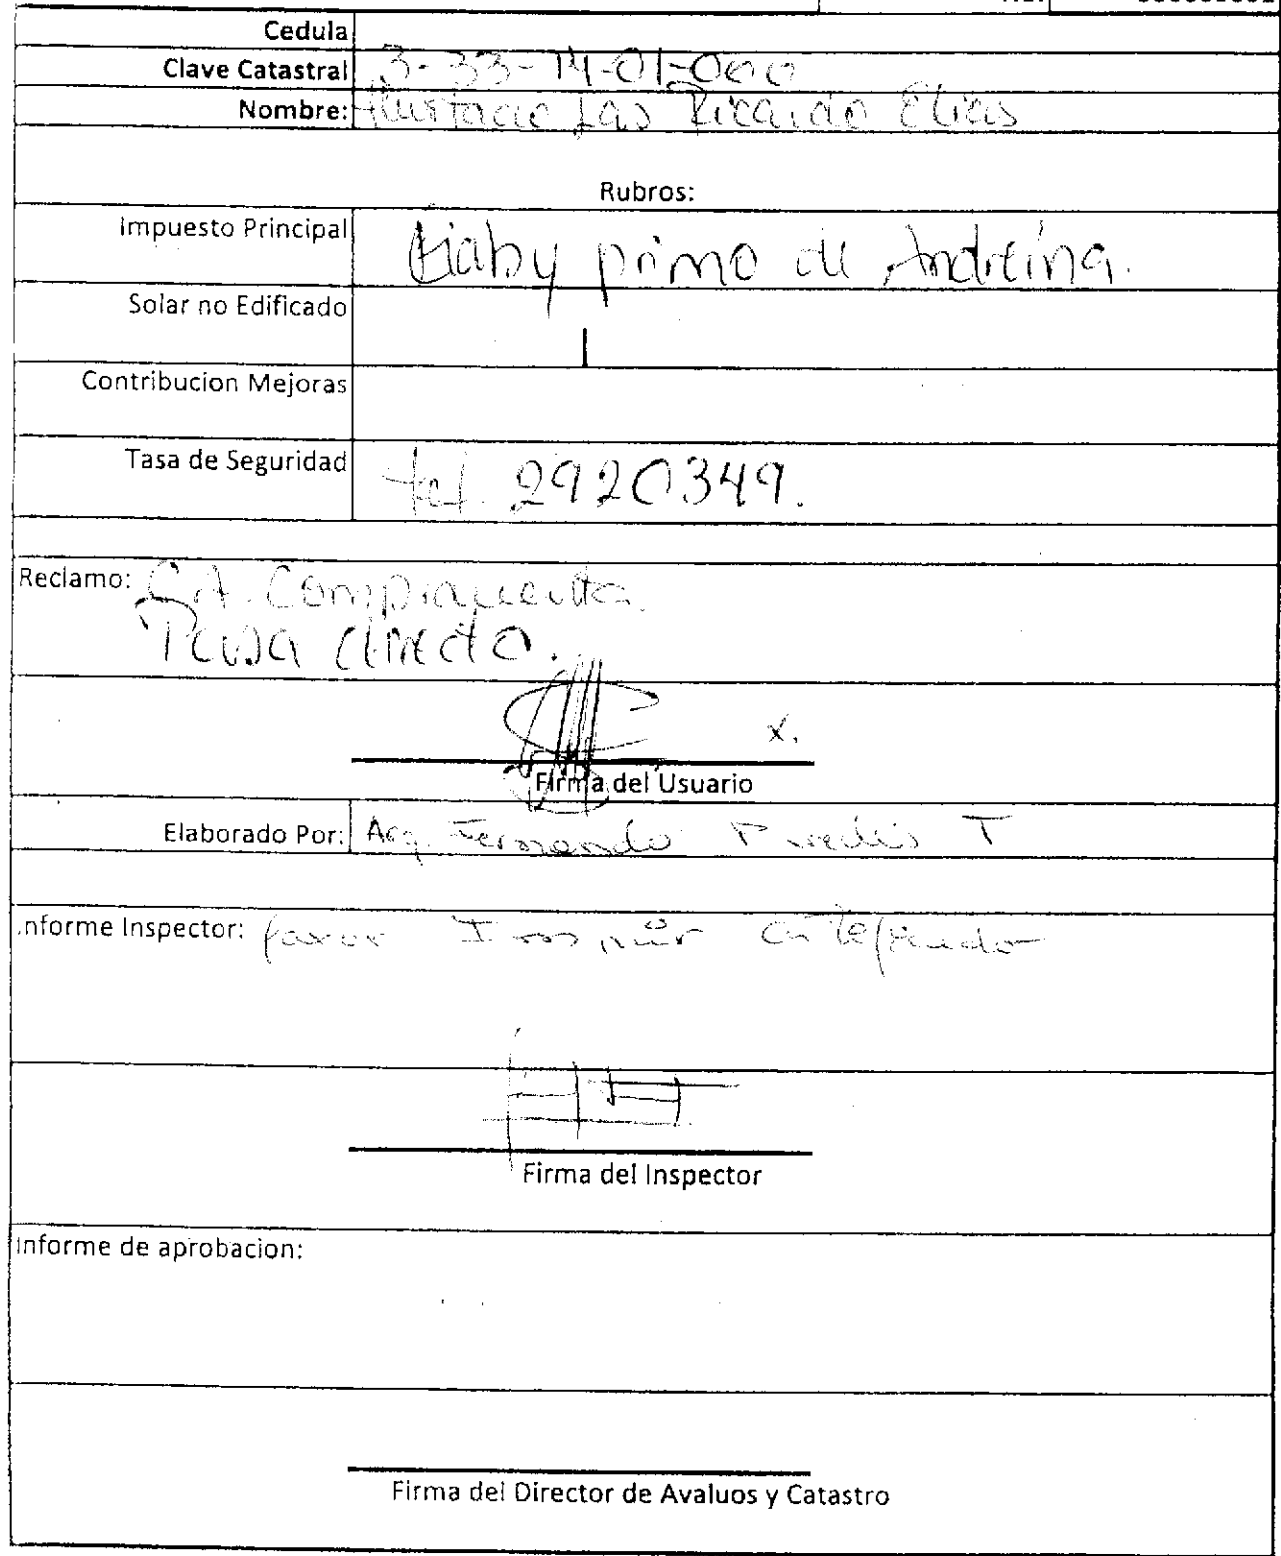 Cedula
Clave Catastral 3-33-14-01-000
Nombre: Ricardo Elias
Rubros:
Impuesto Principal Gaby primo de Andreina.
Solar no Edificado
Contribucion Mejoras
Tasa de Seguridad tel. 2920349.
Reclamo: C.A. Compraventa.
Pasa directo.
x.
Firma del Usuario
Elaborado Por: Arq. Fernando T
Informe Inspector: favor
Firma del Inspector
Informe de aprobacion:
Firma del Director de Avaluos y Catastro